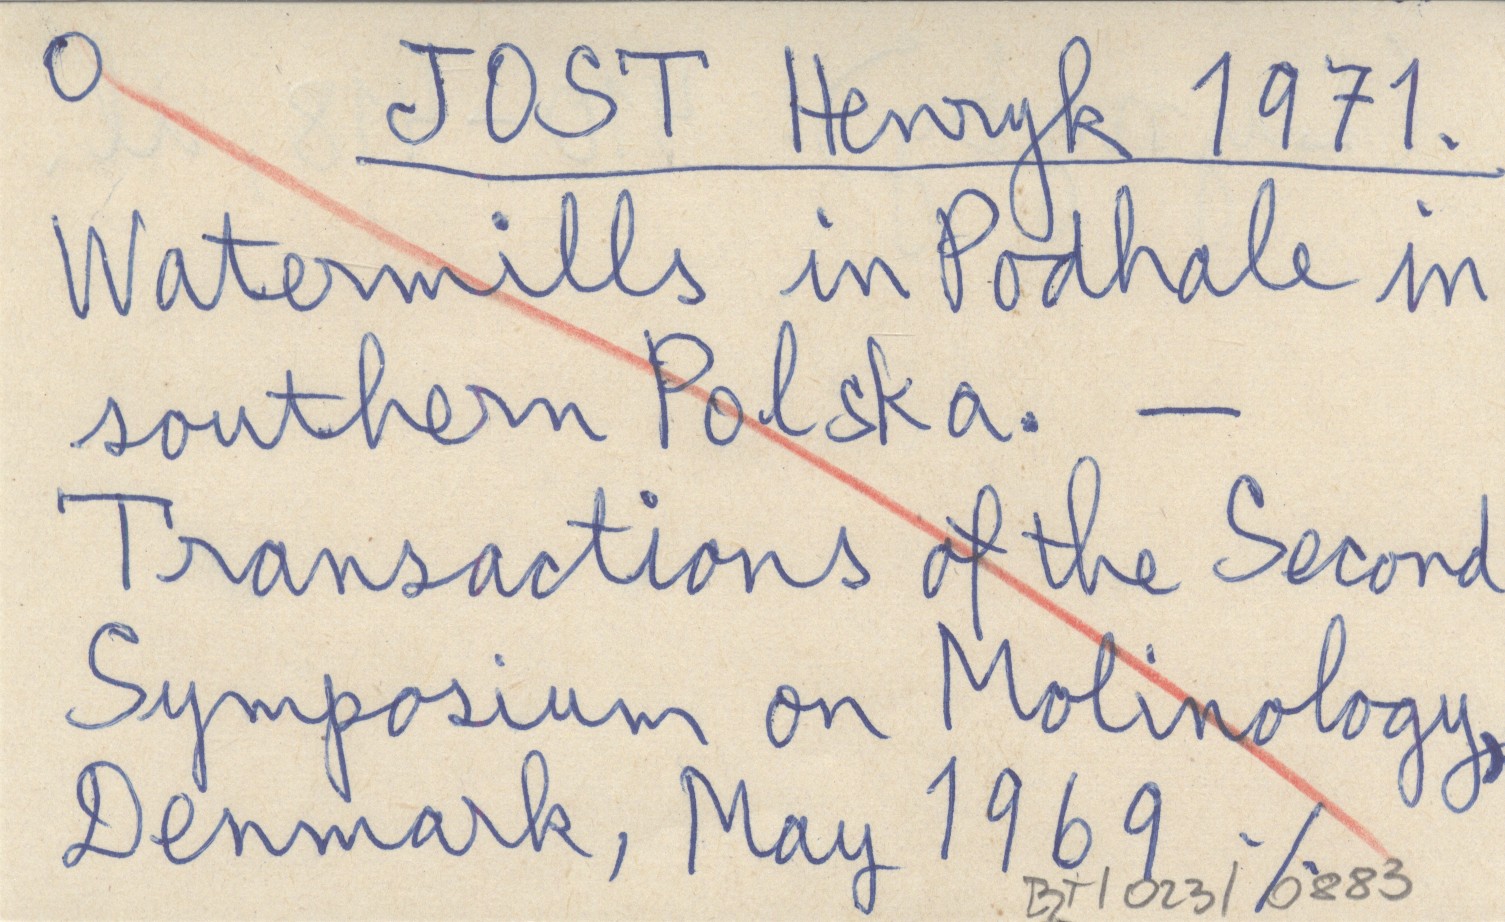 O JOST Henryk 1971.
Watermills in Podhale in
southern Polska. —
Transactions of the Second
Symposium on Molinology,
Denmark, May 1969 ./.
BT/023/0883